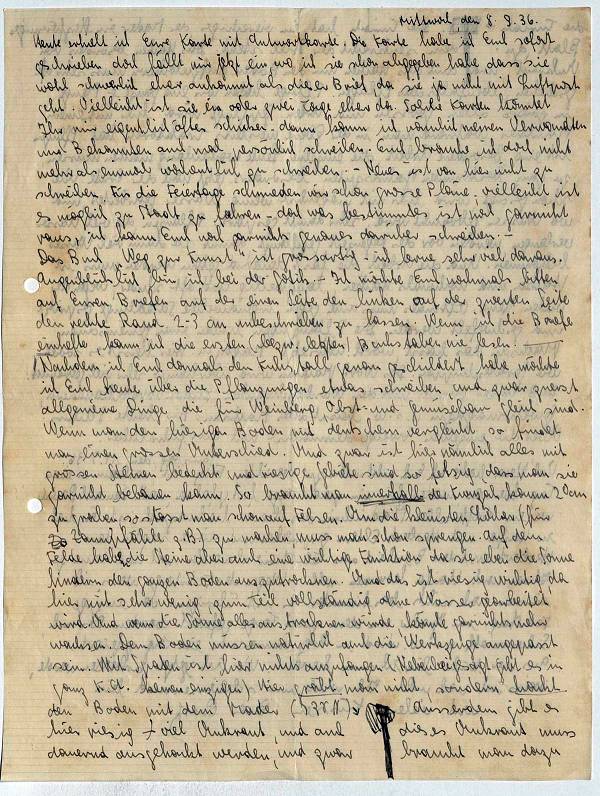 Mittwoch, den 8. 9. 36.
Heute erhielt ich Eure Karte mit Antwortkarte. Die Karte habe ich Euch sofort
geschrieben doch fällt mir jetzt ein wo ich sie schon abgegeben habe dass sie
wohl schwerlich eher ankommt als dieser Brief, da sie ja nicht mit Luftpost
geht. Vielleicht ist sie ein oder zwei Tage eher da. Solche Karten könntet
Ihr mir eigentlich öfter schicken. dann kann ich nämlich meinen Verwandten
und Bekannten auch mal persönlich schreiben. Euch brauche ich doch nicht
mehr als einmal wöchentlich zu schreiben. – Neues ist von hier nicht zu
schreiben. Für die Feiertage schmieden wir schon grosse Pläne, vielleicht ist
es möglich zu Stadt zu fahren – doch was bestimmtes ist noch garnicht
raus, ich kann Euch noch garnichts genaues darüber schreiben. –
Das Buch „Weg zur Kunst" ist grossartig – ich lerne sehr viel daraus.
Augenblicklich bin ich bei der Gotik. – Ich möchte Euch nochmals bitten
auf Euren Briefen auf der einen Seite den linken auf der zweiten Seite
den rechte Rand 2-3 cm unbeschrieben zu lassen. Wenn ich die Briefe
einhefte, kann ich die ersten (bezw. letzten) Buchstaben nie lesen. —
Nachdem ich Euch damals den Kuhstall genau geschildert habe, möchte
ich Euch heute über die Pflanzungen etwas schreiben und zwar zuerst
allgemeine Dinge die für Weinberg Obst- und Gemüsebau gleich sind.
Wenn man den hiesigen Boden mit deutschem vergleicht so findet
man einen grossen Unterschied. Und zwar ist hier nämlich alles mit
grossen Steinen bedeckt und riesige Gebiete sind so felsig, dass man sie
garnicht bebauen kann. So braucht man innerhalb der kaum 20cm
zu graben so stösst man schon auf Felsen. Um die kleinsten Löcher (für
Zaunpfähle z.B) zu machen muss man schon sprengen. Auf dem
Felde haben die Steine aber auch eine wichtige Funktion da sie eben die Sonne
hindern den ganzen Boden auszutrocknen. Und das ist riesig wichtig, da
hier mit sehr wenig zum teil vollständig ohne Wasser gearbeitet
wird. Und wenn die Sonne alles austrocknen würde könnte garnichts mehr
wachsen. Dem Boden müssen natürlich auch die Werkzeuge angepasst
sein. Mit Spaten ist hier nichts anzufangen (Nebenbei gesagt gibt es in
ganz K.A. keinen einzigen) Hier gräbt man nicht sondern hackt
den Boden mit dem Mader Ausserdem gibt es
hier riesig viel Unkraut, und auch dieses Unkraut muss
dauernd ausgehackt werden, und zwar braucht man dazu